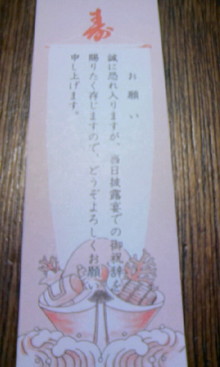 寿
お願い
誠に恐れ入りますが、当日披露宴での御祝辞を
賜りたく存じますので、どうぞよろしくお願い
申し上げます。